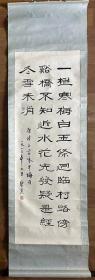 一樹寒梅白玉條迥臨村路傍
谿橋不知近水花先發疑是經
冬雪未消